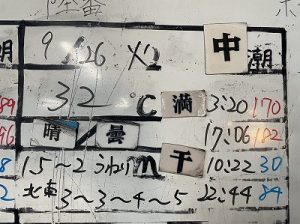 9/26 火 中潮
32 ℃ 満 3:20 170
晴/曇 17:06 182
1.5~2 うねりm 干 10:22 30
北東 3~3~4~5 22:44 84